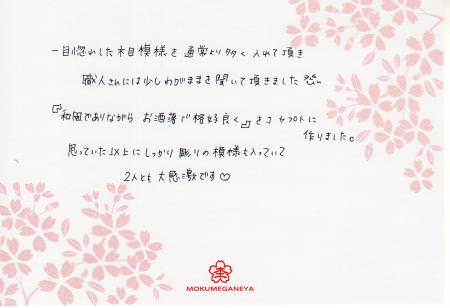 一目惚れした木目模様を通常より多く入れて頂き
職人さんには少しわがままを聞いて頂きました
『和風でありながら お洒落で格好良く』をコンセプトに
作りました。
思っていた以上にしっかり彫りの模様も入っていて
2人とも大感激です♡
MOKUMEGANEYA